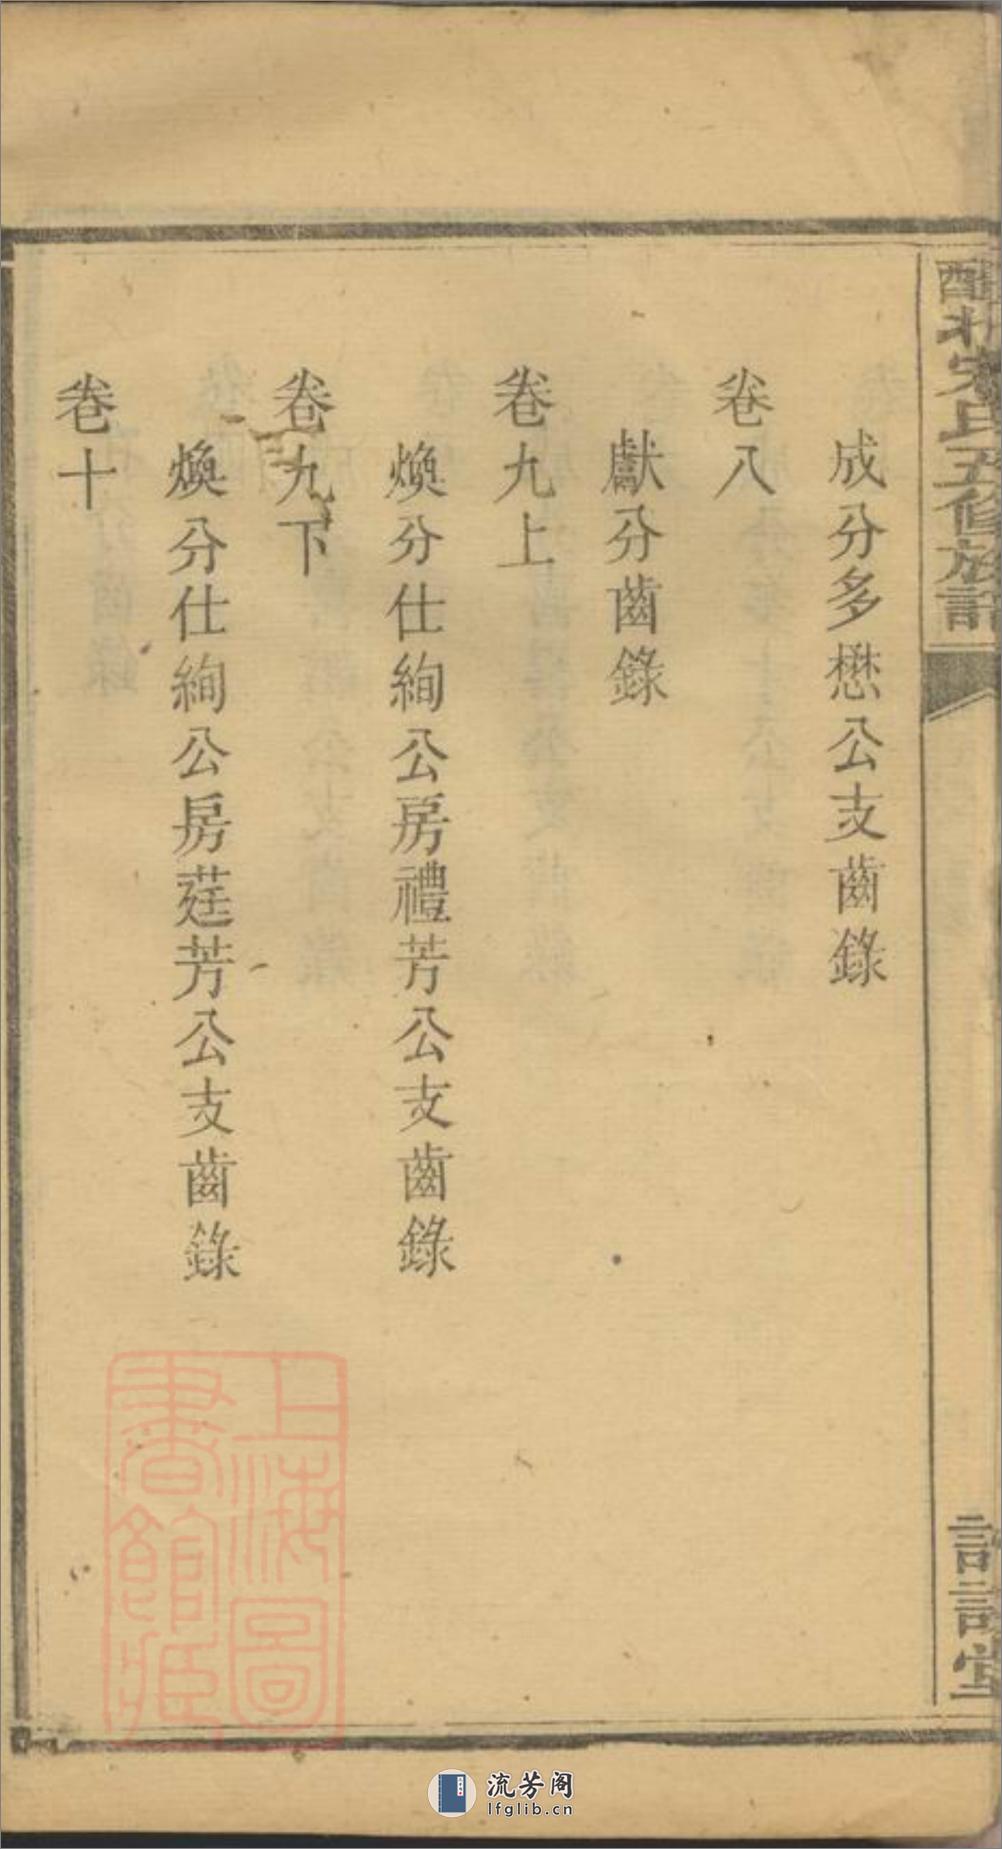 宋氏五修族譜
成分多懋公支齒錄
卷八
獻分齒錄
卷九上
煥分仕絢公房禮芳公支齒錄
卷九下
煥分仕絢公房莛芳公支齒錄
卷十
上海圖
書館藏
流芳阁
lfglib.cn